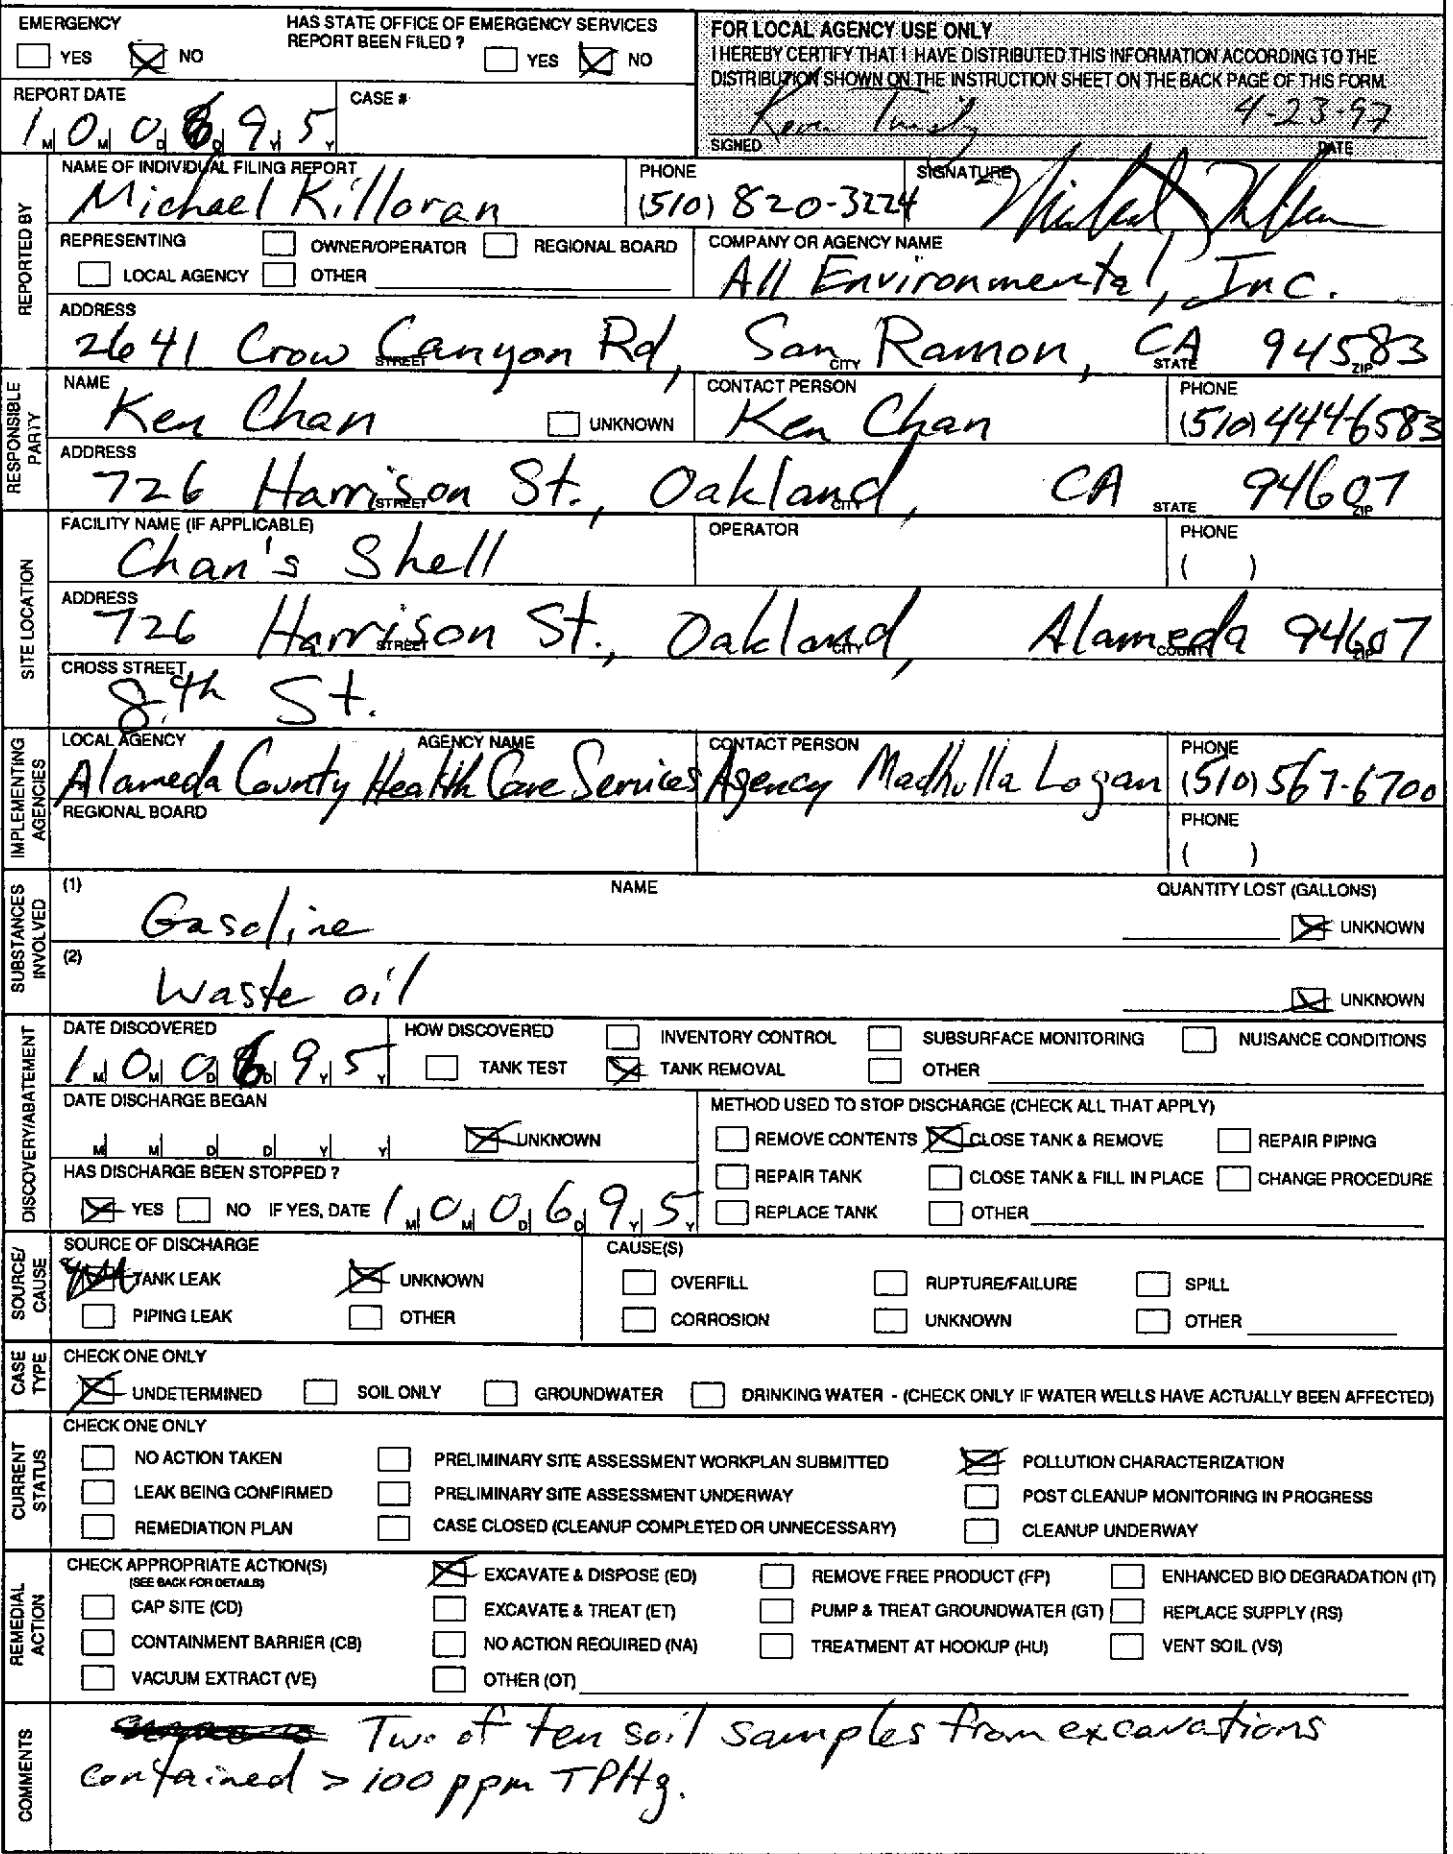 EMERGENCY
YES NO
HAS STATE OFFICE OF EMERGENCY SERVICES
REPORT BEEN FILED ?
YES NO
FOR LOCAL AGENCY USE ONLY
I HEREBY CERTIFY THAT I HAVE DISTRIBUTED THIS INFORMATION ACCORDING TO THE
DISTRIBUTION SHOWN ON THE INSTRUCTION SHEET ON THE BACK PAGE OF THIS FORM.
4-23-97
SIGNED DATE
REPORT DATE
1 0 0 6 9 5
M M D D Y Y
CASE #
REPORTED BY
NAME OF INDIVIDUAL FILING REPORT
Michael Killoran
PHONE
(510) 820-3224
SIGNATURE
REPRESENTING
OWNER/OPERATOR REGIONAL BOARD
LOCAL AGENCY OTHER
COMPANY OR AGENCY NAME
All Environmental, Inc.
ADDRESS
2641 Crow Canyon Rd, San Ramon, CA 94583
STREET CITY STATE ZIP
RESPONSIBLE
PARTY
NAME
Ken Chan
UNKNOWN
CONTACT PERSON
Ken Chan
PHONE
(510) 4446583
ADDRESS
726 Harrison St., Oakland, CA 94607
STREET CITY STATE ZIP
SITE LOCATION
FACILITY NAME (IF APPLICABLE)
Chan's Shell
OPERATOR
PHONE
( )
ADDRESS
726 Harrison St., Oakland, Alameda 94607
STREET CITY COUNTY ZIP
CROSS STREET
8th St.
IMPLEMENTING
AGENCIES
LOCAL AGENCY AGENCY NAME
CONTACT PERSON
PHONE
Alameda County Health Care Services Agency Madhulla Logan (510) 567-6700
REGIONAL BOARD
PHONE
( )
SUBSTANCES
INVOLVED
(1) NAME QUANTITY LOST (GALLONS)
Gasoline
UNKNOWN
(2)
Waste oil
UNKNOWN
DISCOVERY/ABATEMENT
DATE DISCOVERED
1 0 0 6 9 5
M M D D Y Y
HOW DISCOVERED
INVENTORY CONTROL SUBSURFACE MONITORING NUISANCE CONDITIONS
TANK TEST TANK REMOVAL OTHER
DATE DISCHARGE BEGAN
M M D D Y Y
UNKNOWN
METHOD USED TO STOP DISCHARGE (CHECK ALL THAT APPLY)
REMOVE CONTENTS CLOSE TANK & REMOVE REPAIR PIPING
REPAIR TANK CLOSE TANK & FILL IN PLACE CHANGE PROCEDURE
REPLACE TANK OTHER
HAS DISCHARGE BEEN STOPPED ?
YES NO IF YES, DATE 1 0 0 6 9 5
M M D D Y Y
SOURCE/
CAUSE
SOURCE OF DISCHARGE
TANK LEAK UNKNOWN
PIPING LEAK OTHER
CAUSE(S)
OVERFILL RUPTURE/FAILURE SPILL
CORROSION UNKNOWN OTHER
CASE
TYPE
CHECK ONE ONLY
UNDETERMINED SOIL ONLY GROUNDWATER DRINKING WATER - (CHECK ONLY IF WATER WELLS HAVE ACTUALLY BEEN AFFECTED)
CURRENT
STATUS
CHECK ONE ONLY
NO ACTION TAKEN PRELIMINARY SITE ASSESSMENT WORKPLAN SUBMITTED POLLUTION CHARACTERIZATION
LEAK BEING CONFIRMED PRELIMINARY SITE ASSESSMENT UNDERWAY POST CLEANUP MONITORING IN PROGRESS
REMEDIATION PLAN CASE CLOSED (CLEANUP COMPLETED OR UNNECESSARY) CLEANUP UNDERWAY
REMEDIAL
ACTION
CHECK APPROPRIATE ACTION(S)
(SEE BACK FOR DETAILS)
EXCAVATE & DISPOSE (ED) REMOVE FREE PRODUCT (FP) ENHANCED BIO DEGRADATION (IT)
CAP SITE (CD) EXCAVATE & TREAT (ET) PUMP & TREAT GROUNDWATER (GT) REPLACE SUPPLY (RS)
CONTAINMENT BARRIER (CB) NO ACTION REQUIRED (NA) TREATMENT AT HOOKUP (HU) VENT SOIL (VS)
VACUUM EXTRACT (VE) OTHER (OT)
COMMENTS
Two of ten soil samples from excavations
contained > 100 ppm TPHg.